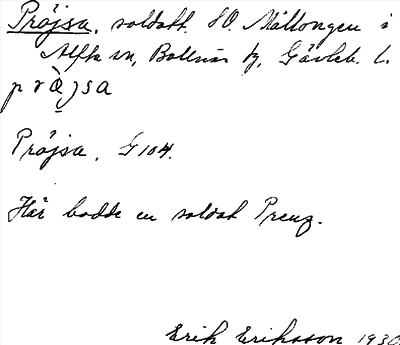 Pröjsa, soldatt. SO. Mållongen i
Alfta sn, Bollnäs tg, Gävleb. l.
Pröjsa, G 104.
Här bodde en soldat Preuz.
Erik Eriksson 1930.